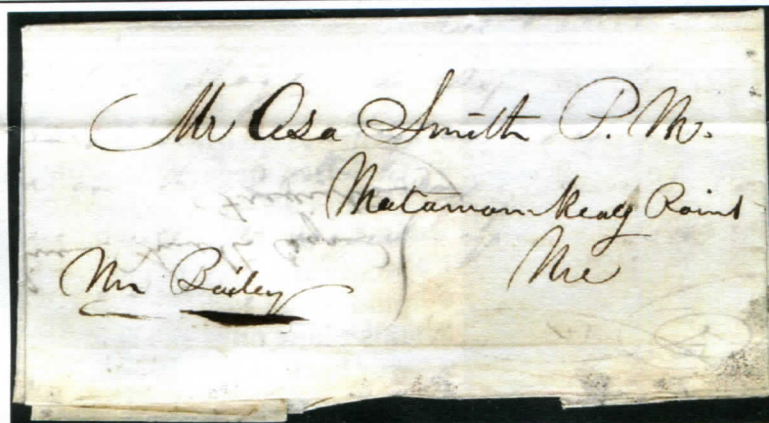 Mr Asa Smith P. M.
Matawamkeag Point
Me
Mr Bailey